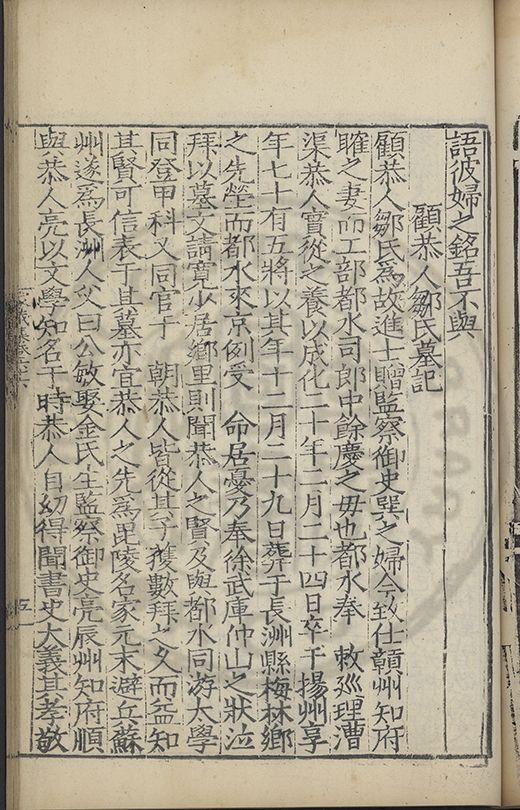 語彼婦之銘吾不與
顧恭人鄒氏墓記
顧恭人鄒氏為故進士贈監察御史巽之婦今致仕贛州知府
睢之妻而工部都水司郎中餘慶之毋也都水奉　敕廵理漕
渠恭人實從之養以成化二十年二月二十四日卒于揚州享
年七十有五將以其年十二月二十九日葬于長洲縣梅林鄉
之先塋而都水來京例受　命居憂乃奉徐武庫仲山之狀泣
拜以墓文請寬少居鄉里則聞恭人之賢及與都水同游太學
同登甲科又同官于　朝恭人皆從其子獲數拜之久而益知
其賢可信表于其墓亦宜恭人之先為毘陵名家元末避兵蘇
州遂為長洲人父曰公敏娶金氏生監察御史亮辰州知府順
與恭人亮以文學知名于時恭人自幼得聞書史大義其孝敬
五